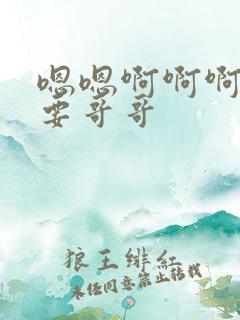 嗯嗯啊啊啊
要哥哥
狼王绯红
未经同意禁止转载